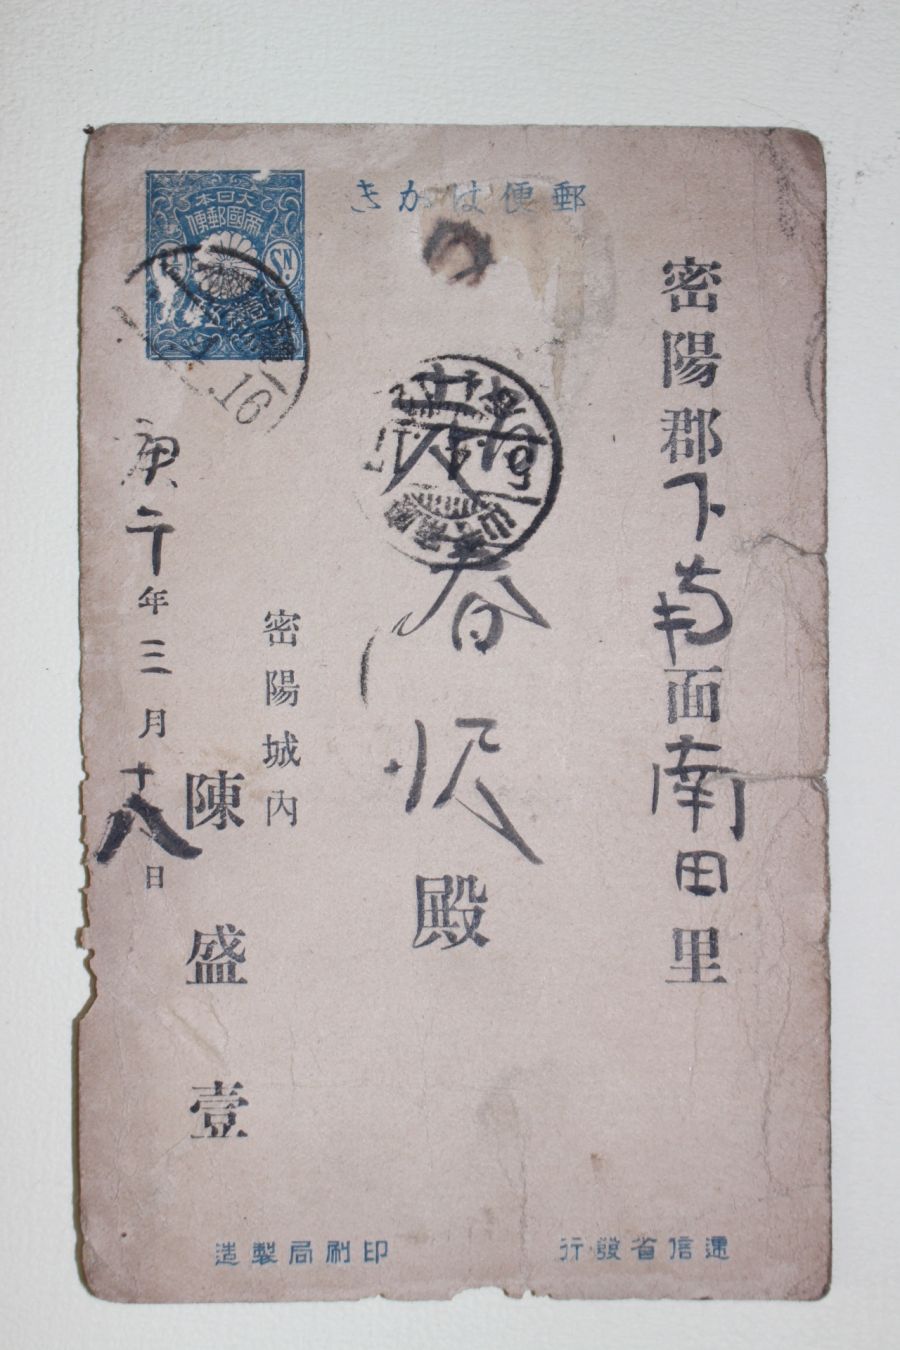 郵便はがき
大日本
帝國郵便
SN.
16
密陽郡下南面南田里
春
殿
密陽城內
陳盛壹
庚午年三月十八日
遞信省發行
印刷局製造